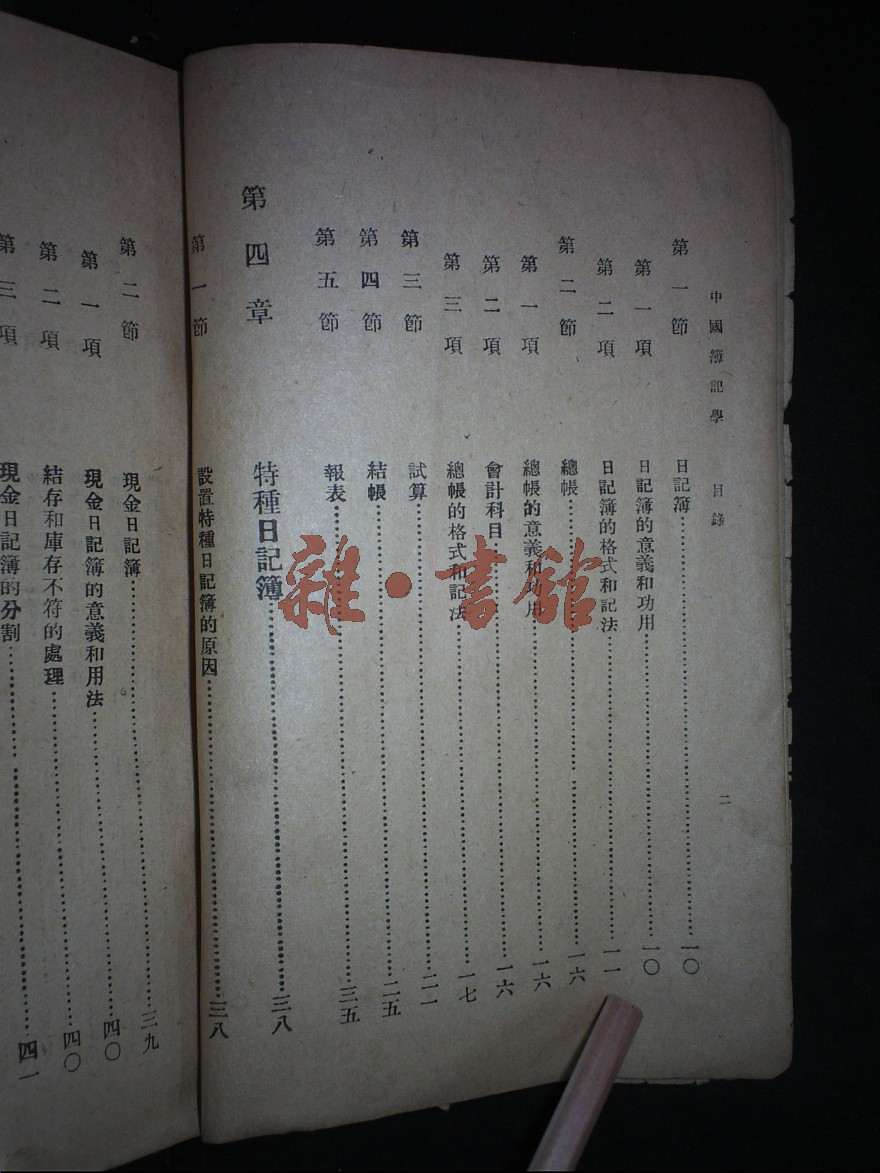 中國簿記學 目錄 二
第一節 日記簿 一〇
第一項 日記簿的意義和功用 一〇
第二項 日記簿的格式和記法 一一
第二節 總帳 一六
第一項 總帳的意義和功用 一六
第二項 會計科目 一六
第三項 總帳的格式和記法 一七
第三節 試算 二一
第四節 結帳 二五
第五節 報表 三五
第四章 特種日記簿 三八
第一節 設置特種日記簿的原因 三八
第二節 現金日記簿 三九
第一項 現金日記簿的意義和用法 四〇
第二項 結存和庫存不符的處理 四〇
第三項 現金日記簿的分割 四一
雜·書館